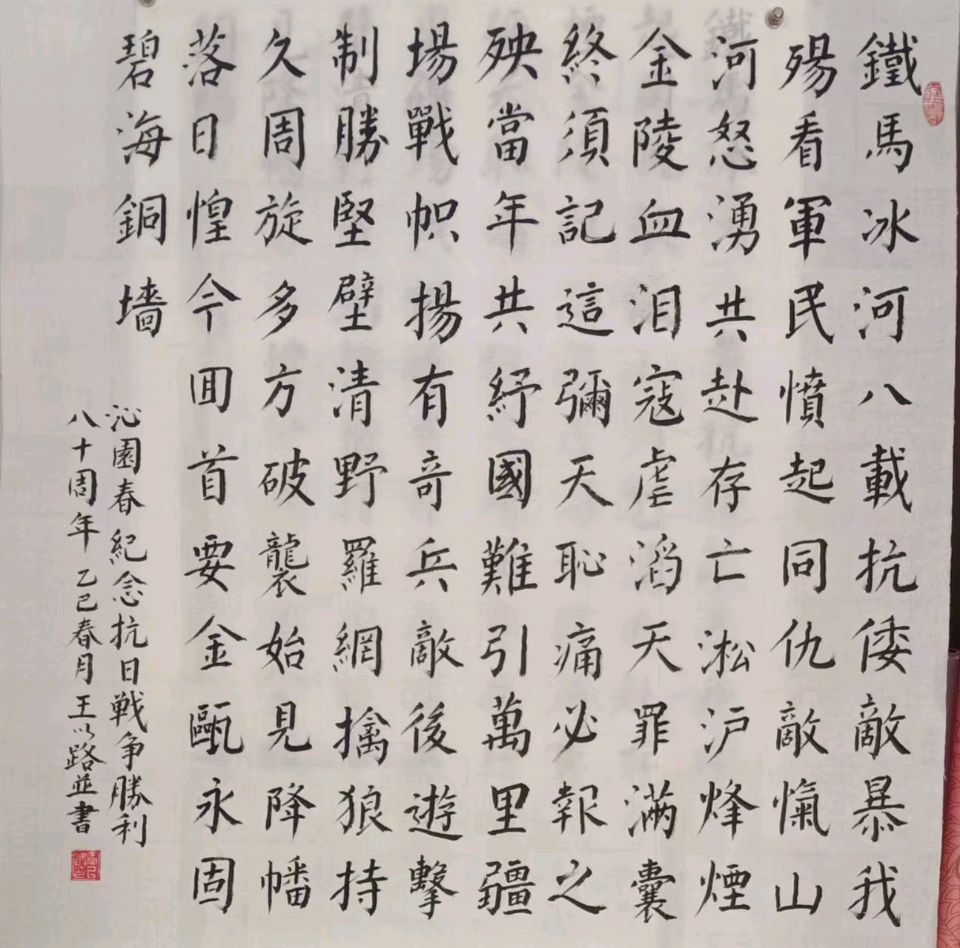 鐵馬冰河八載抗倭敵暴我
殤看軍民憤起同仇敵愾山
河怒湧共赴存亡淞沪烽煙
金陵血泪寇虐滔天罪滿囊
終須記這彌天恥痛必報之
殃當年共紓國難引萬里疆
場戰幟揚有奇兵敵後遊擊
制勝堅壁清野羅網擒狼持
久周旋多方破襲始見降幡
落日惶今囬首要金甌永固
碧海銅墙
沁園春紀念抗日戰争勝利
八十周年乙巳春月王以路並書